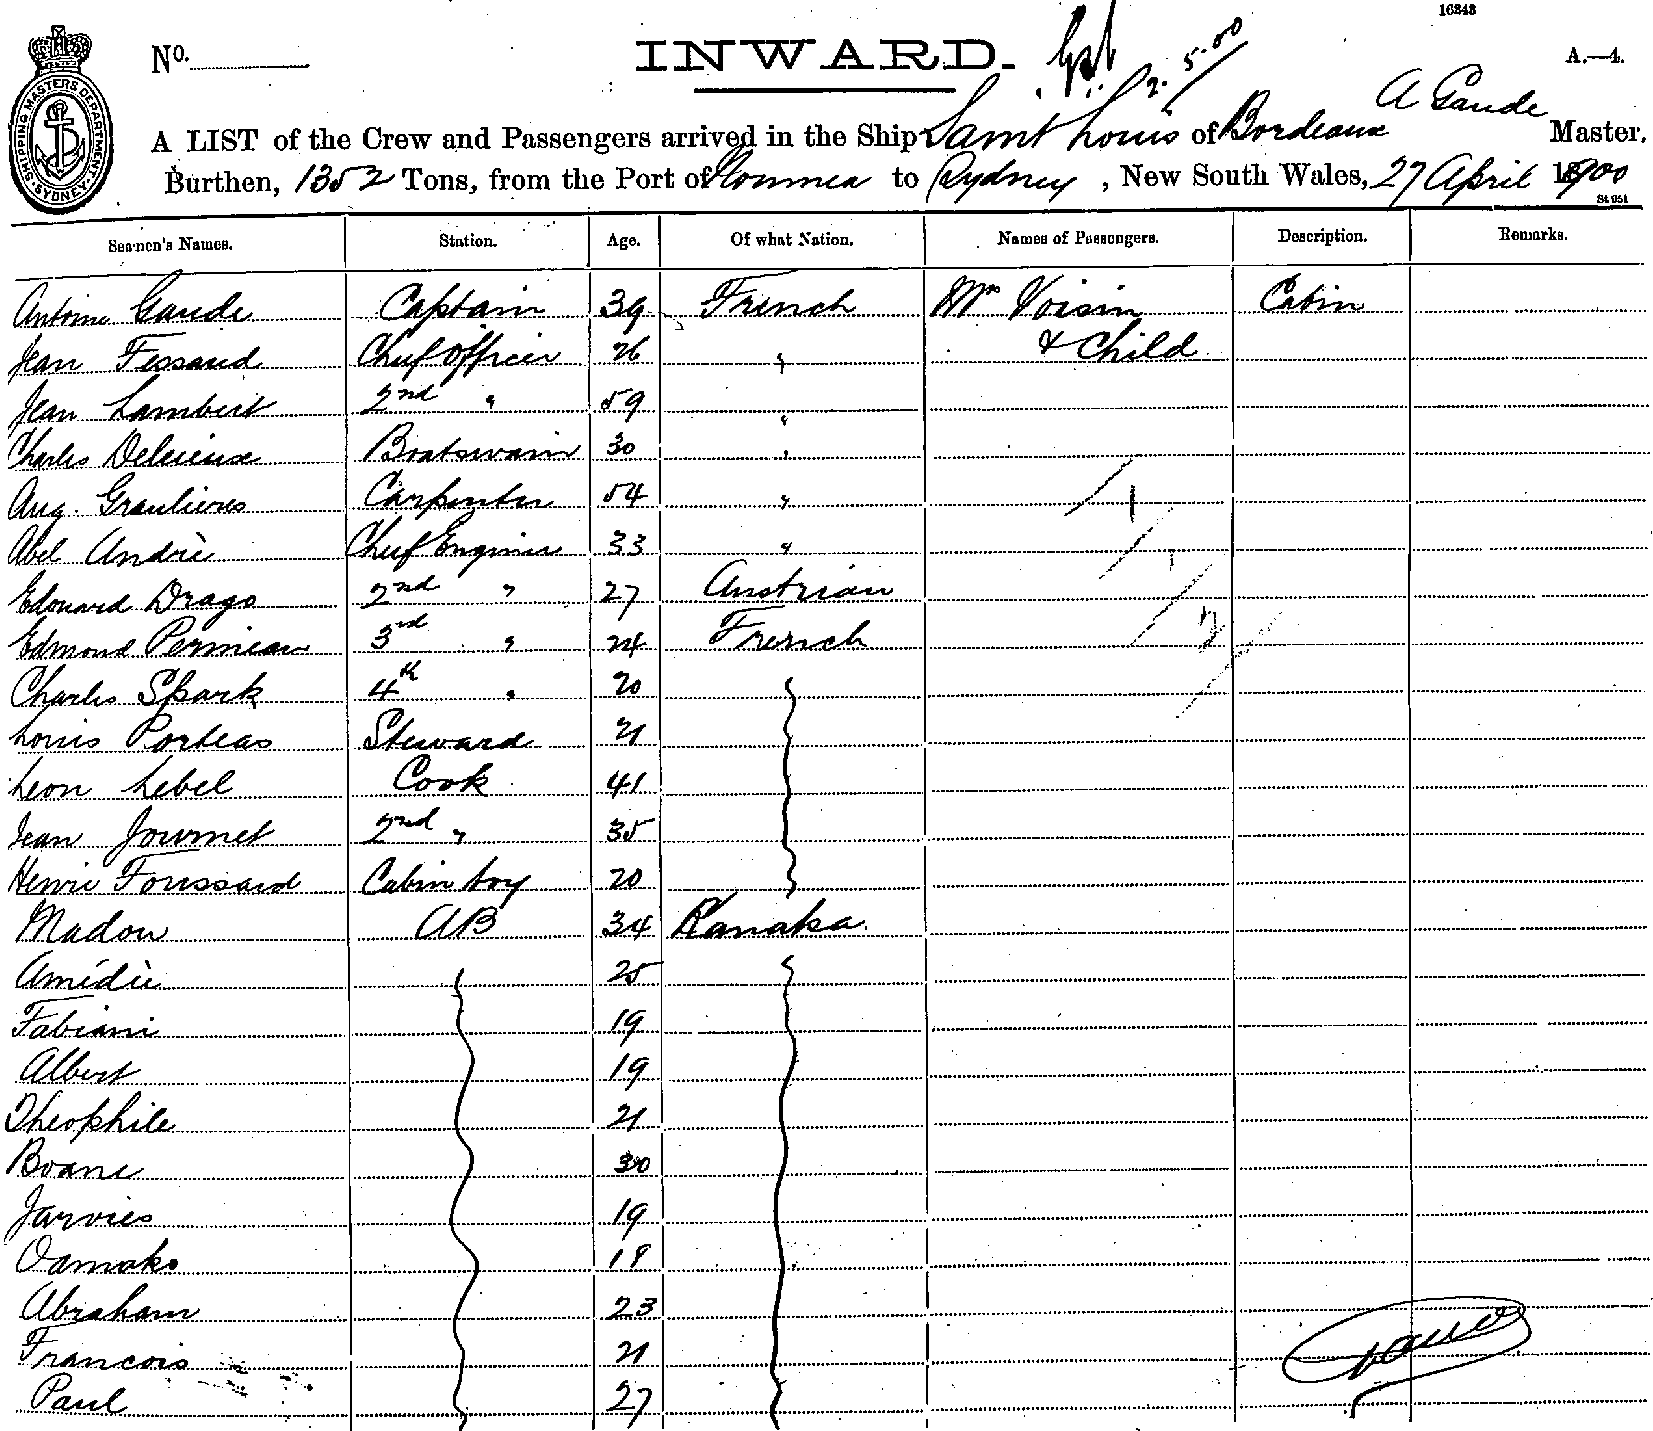 16343
No.
INWARD.
2.5.00
A.—4.
A Gaude
A LIST of the Crew and Passengers arrived in the Ship Saint Louis of Bordeaux Master.
Burthen, 1352 Tons, from the Port of Noumea to Sydney, New South Wales, 27 April 1900
St 951
SHIPPING MASTERS DEPARTMENT SYDNEY
Seamen's Names. Station. Age. Of what Nation. Names of Passengers. Description. Remarks.
Antoine Gaude Captain 39 French Mrs Voisin Cabin
Jean Fessaud Chief Officer 26 " & Child
Jean Lambert 2nd " 59 "
Charles Delerieux Boatswain 30 "
Aug. Graulieres Carpenter 54 "
Abel Andrè Chief Engineer 33 "
Edouard Drago 2nd " 27 Austrian
Edmond Permeau 3rd " 24 French
Charles Spark 4th " 20
Louis Porteas Steward 21
Leon Lebel Cook 41
Jean Journet 2nd " 35
Henri Foussard Cabin boy 20
Madou AB 34 Kanaka
Amédée 25
Fabiani 19
Albert 19
Theophile 21
Boane 30
Jarvies 19
Oamako 18
Abraham 23
Francois 21
Paul 27
Gaude